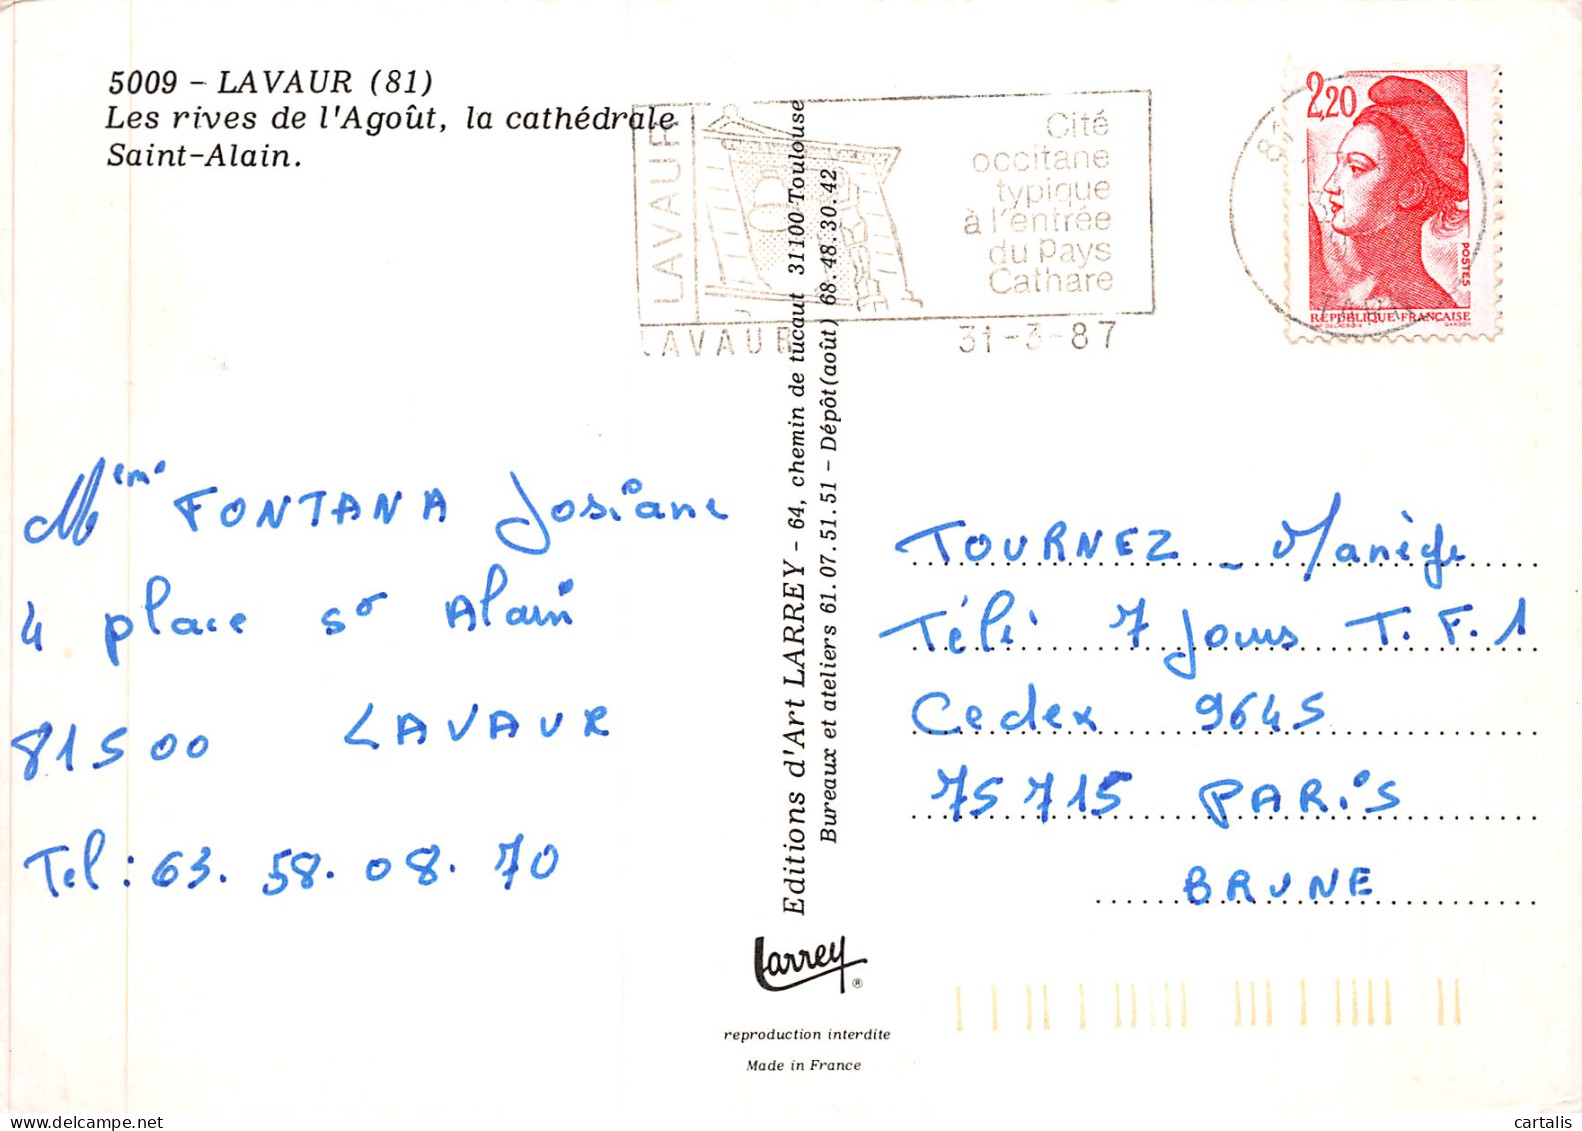 5009 - LAVAUR (81)
Les rives de l'Agoût, la cathédrale
Saint-Alain.
LAVAUR
Cité
occitane
typique
à l'entrée
du Pays
Cathare
LAVAUR 31-3-87
2,20
POSTES
REPUBLIQUE FRANÇAISE
DELACROIX GANDON
81
Mᵉᵐᵉ FONTANA Josiane
4 place sᵗ Alain
81500 LAVAUR
Tel : 63. 58. 08. 70
Editions d'Art LARREY - 64, chemin de tucaut 31100 Toulouse
Bureaux et ateliers 61.07.51.51 - Dépôt(août) 68.48.30.42
TOURNEZ - Manège
Téli 7 Jours T.F.1
Cedex 9645
75715 PARIS
BRUNE
Larrey ®
reproduction interdite
Made in France
cartalis